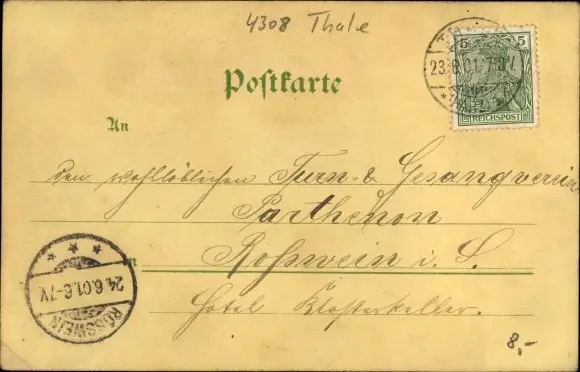 4308 Thale
5 5
REICHSPOST
23.6.01. 7-8V
Postkarte
An
den wohllöblichen Turn- & Gesangverein
Parthenon
in Roßwein i. S.
Hotel Klosterkeller.
24.6.01.6-7V.
ROSSWEIN
8,-